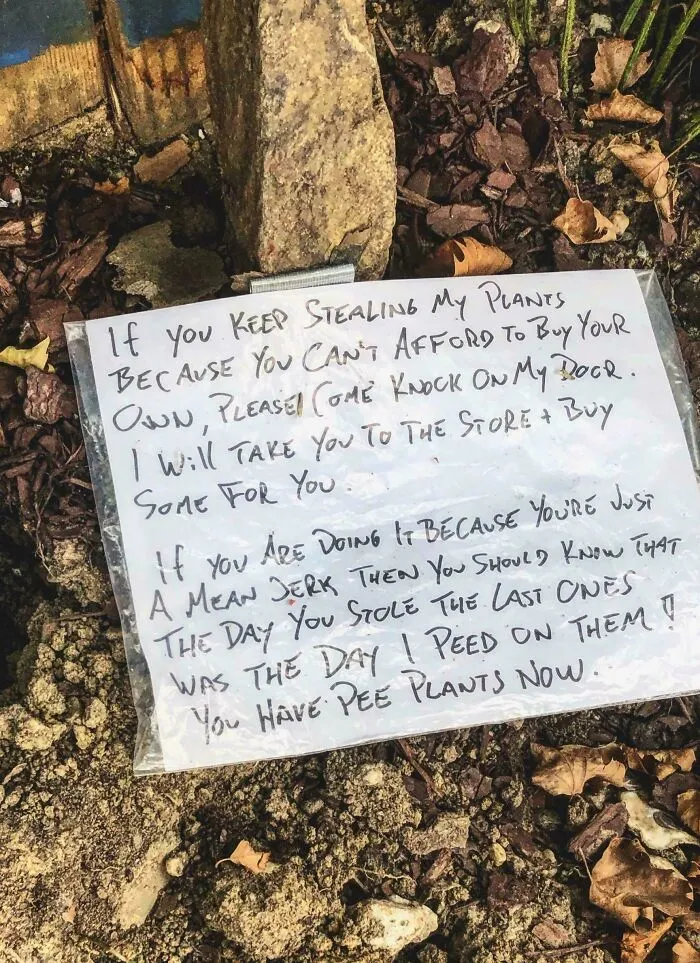 If you keep stealing my plants
because you can't afford to buy your
own, please come knock on my door.
I will take you to the store + buy
some for you.
If you are doing it because you're just
a mean jerk then you should know that
the day you stole the last ones
was the day I peed on them!
You have pee plants now.